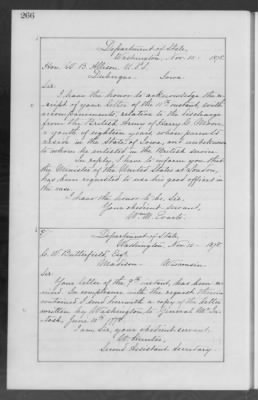 266
Department of State,
Washington, Nov. 15, 1878.
Hon. W. B. Allison, U.S.S.
Dubuque, Iowa.
Sir:
I have the honor to acknowledge the re-
ceipt of your letter of the 11th instant, with
accompaniments, relative to the discharge
from the British Army of Harry G.
a youth of eighteen years whose parents
reside in the State of Iowa, and unbeknown
to whom he enlisted in the British service.
In reply I have to inform you that
the Minister of the United States at London,
has been requested to use his good offices in
the case.
I have the honor to be, Sir,
Your obedient servant,
Wm. M. Evarts.
Department of State,
Washington, Nov. 15, 1878.
C. W. Butterfield, Esq.
Madison, Wisconsin.
Sir:
Your letter of the 7th instant, has been re-
ceived. In compliance with the request therein
contained I send herewith a copy of the letter
written by Washington to General McIn-
tosh June 10th 1778.
I am Sir, your obedient servant,
W. Hunter,
Second Assistant Secretary.